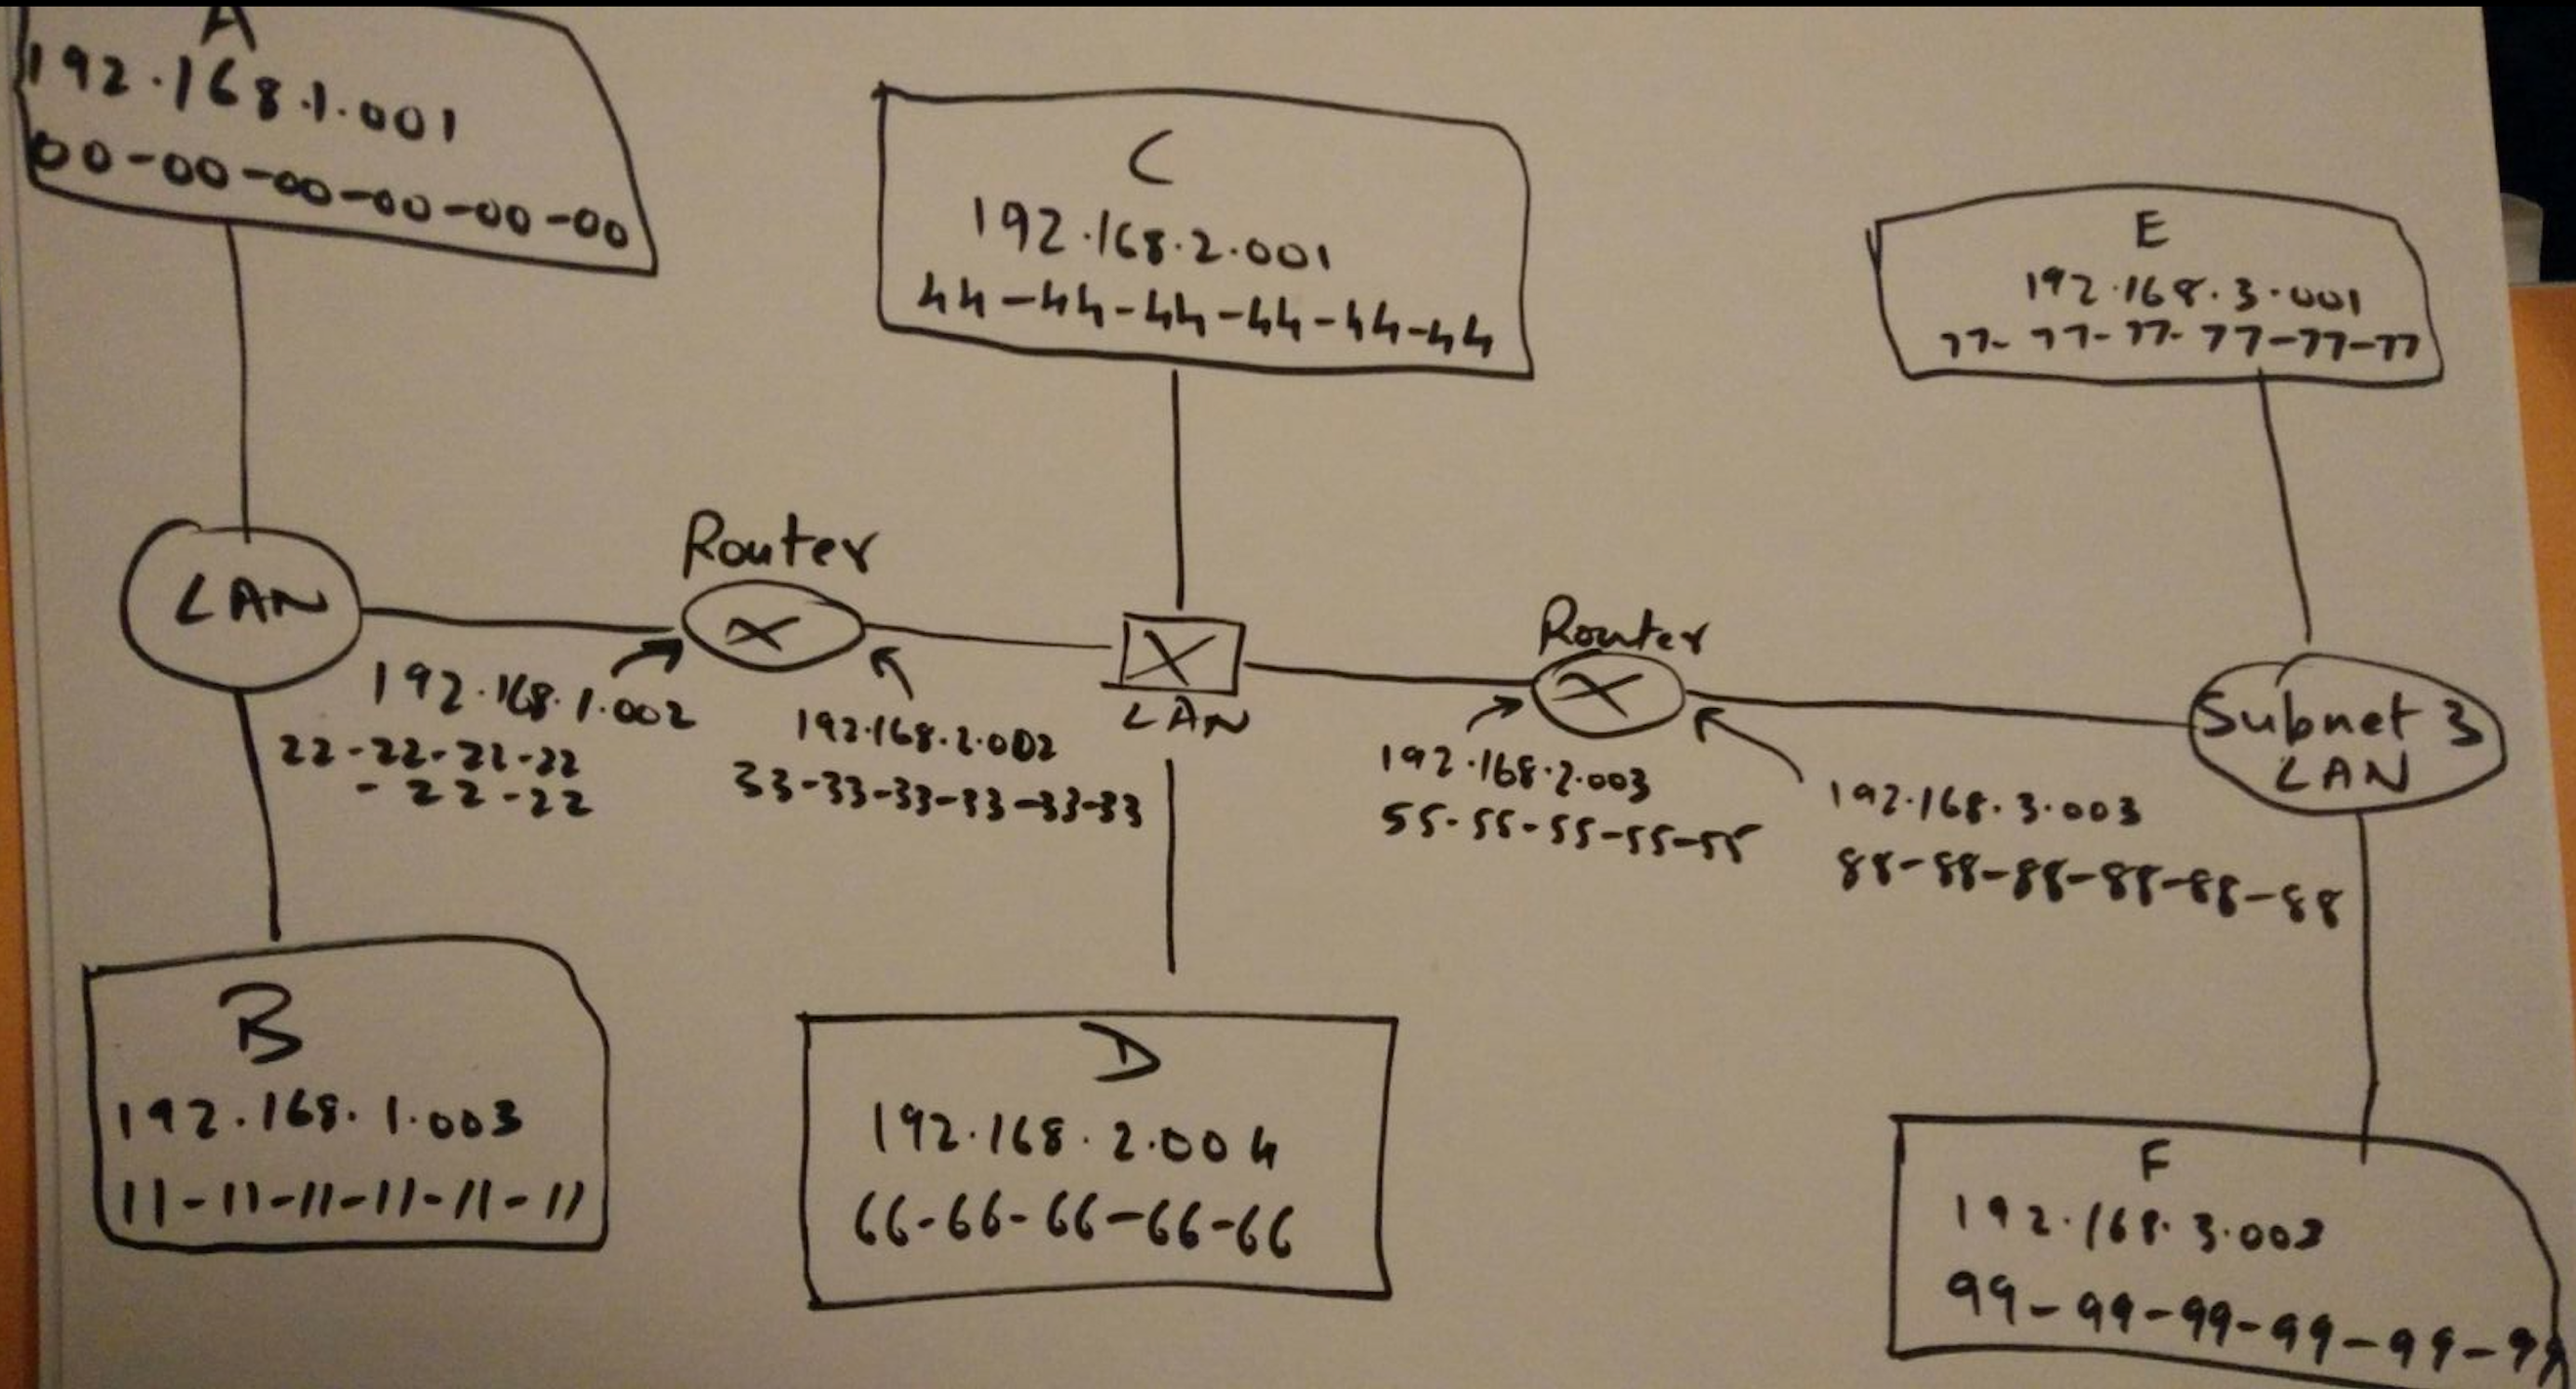 A
192.168.1.001
00-00-00-00-00-00
C
192.168.2.001
44-44-44-44-44-44
E
192.168.3.001
77-77-77-77-77-77
LAN
Router
192.168.1.002
22-22-22-22
-22-22
192.168.2.002
33-33-33-33-33-33
LAN
Router
192.168.2.003
55-55-55-55-55
192.168.3.003
88-88-88-88-88-88
Subnet 3
LAN
B
192.168.1.003
11-11-11-11-11-11
D
192.168.2.004
66-66-66-66-66
F
99-99-99-99-99-99